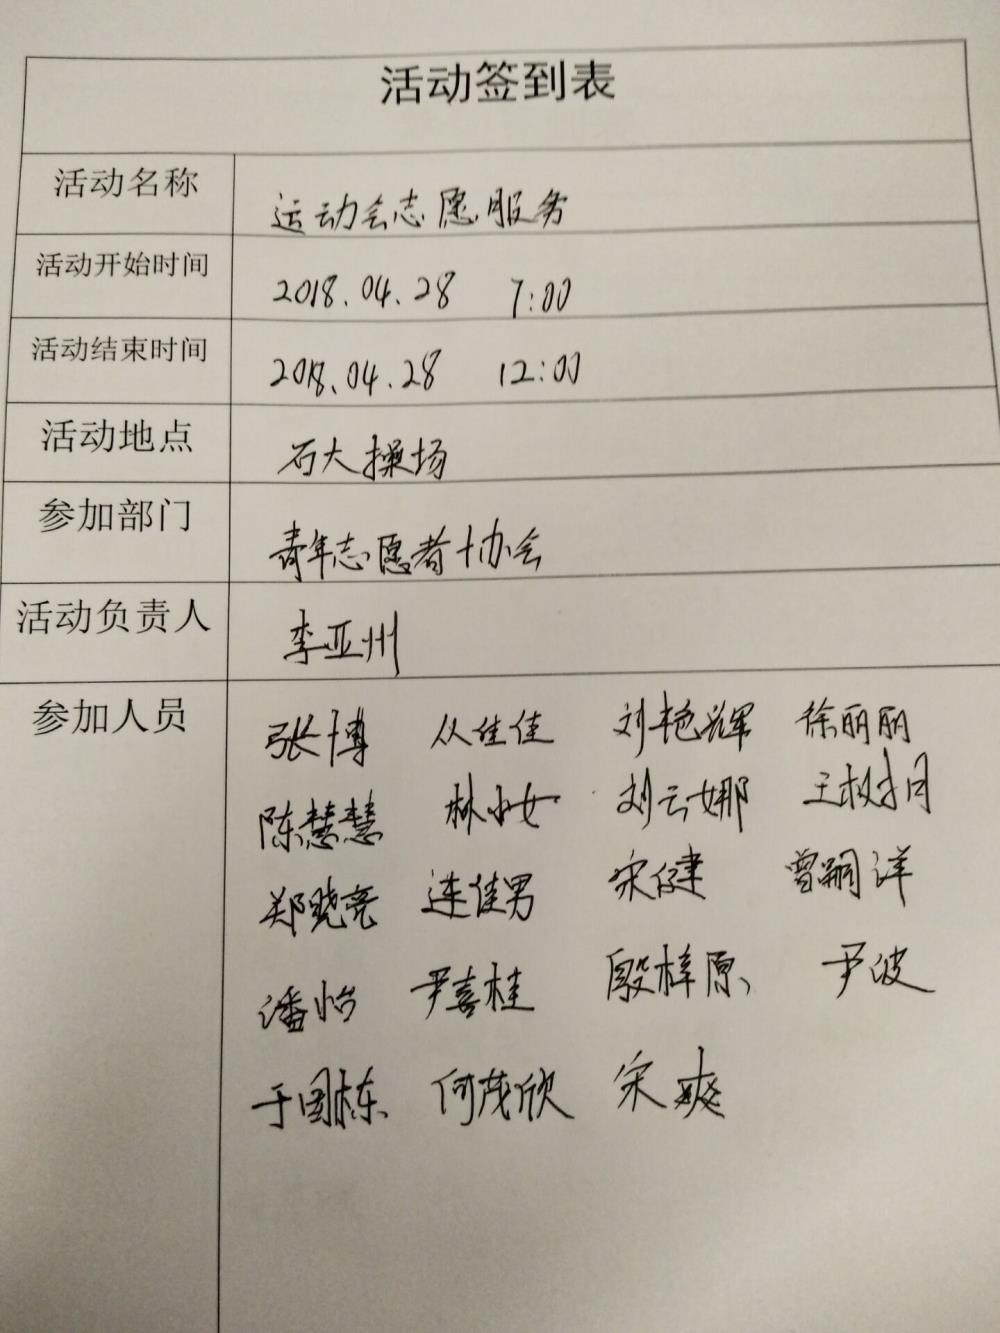 活动签到表
活动名称 运动会志愿服务
活动开始时间 2018.04.28 7:00
活动结束时间 2018.04.28 12:00
活动地点 石大操场
参加部门 青年志愿者协会
活动负责人 李亚州
参加人员 张博 从佳佳 刘艳辉 徐丽丽
陈慧慧 林小女 刘云娜
郑晓亮 连佳男 宋健 曾嗣洋
潘怡 尹喜桂 殷梓原 尹波
于国栋 何茂欣 宋爽